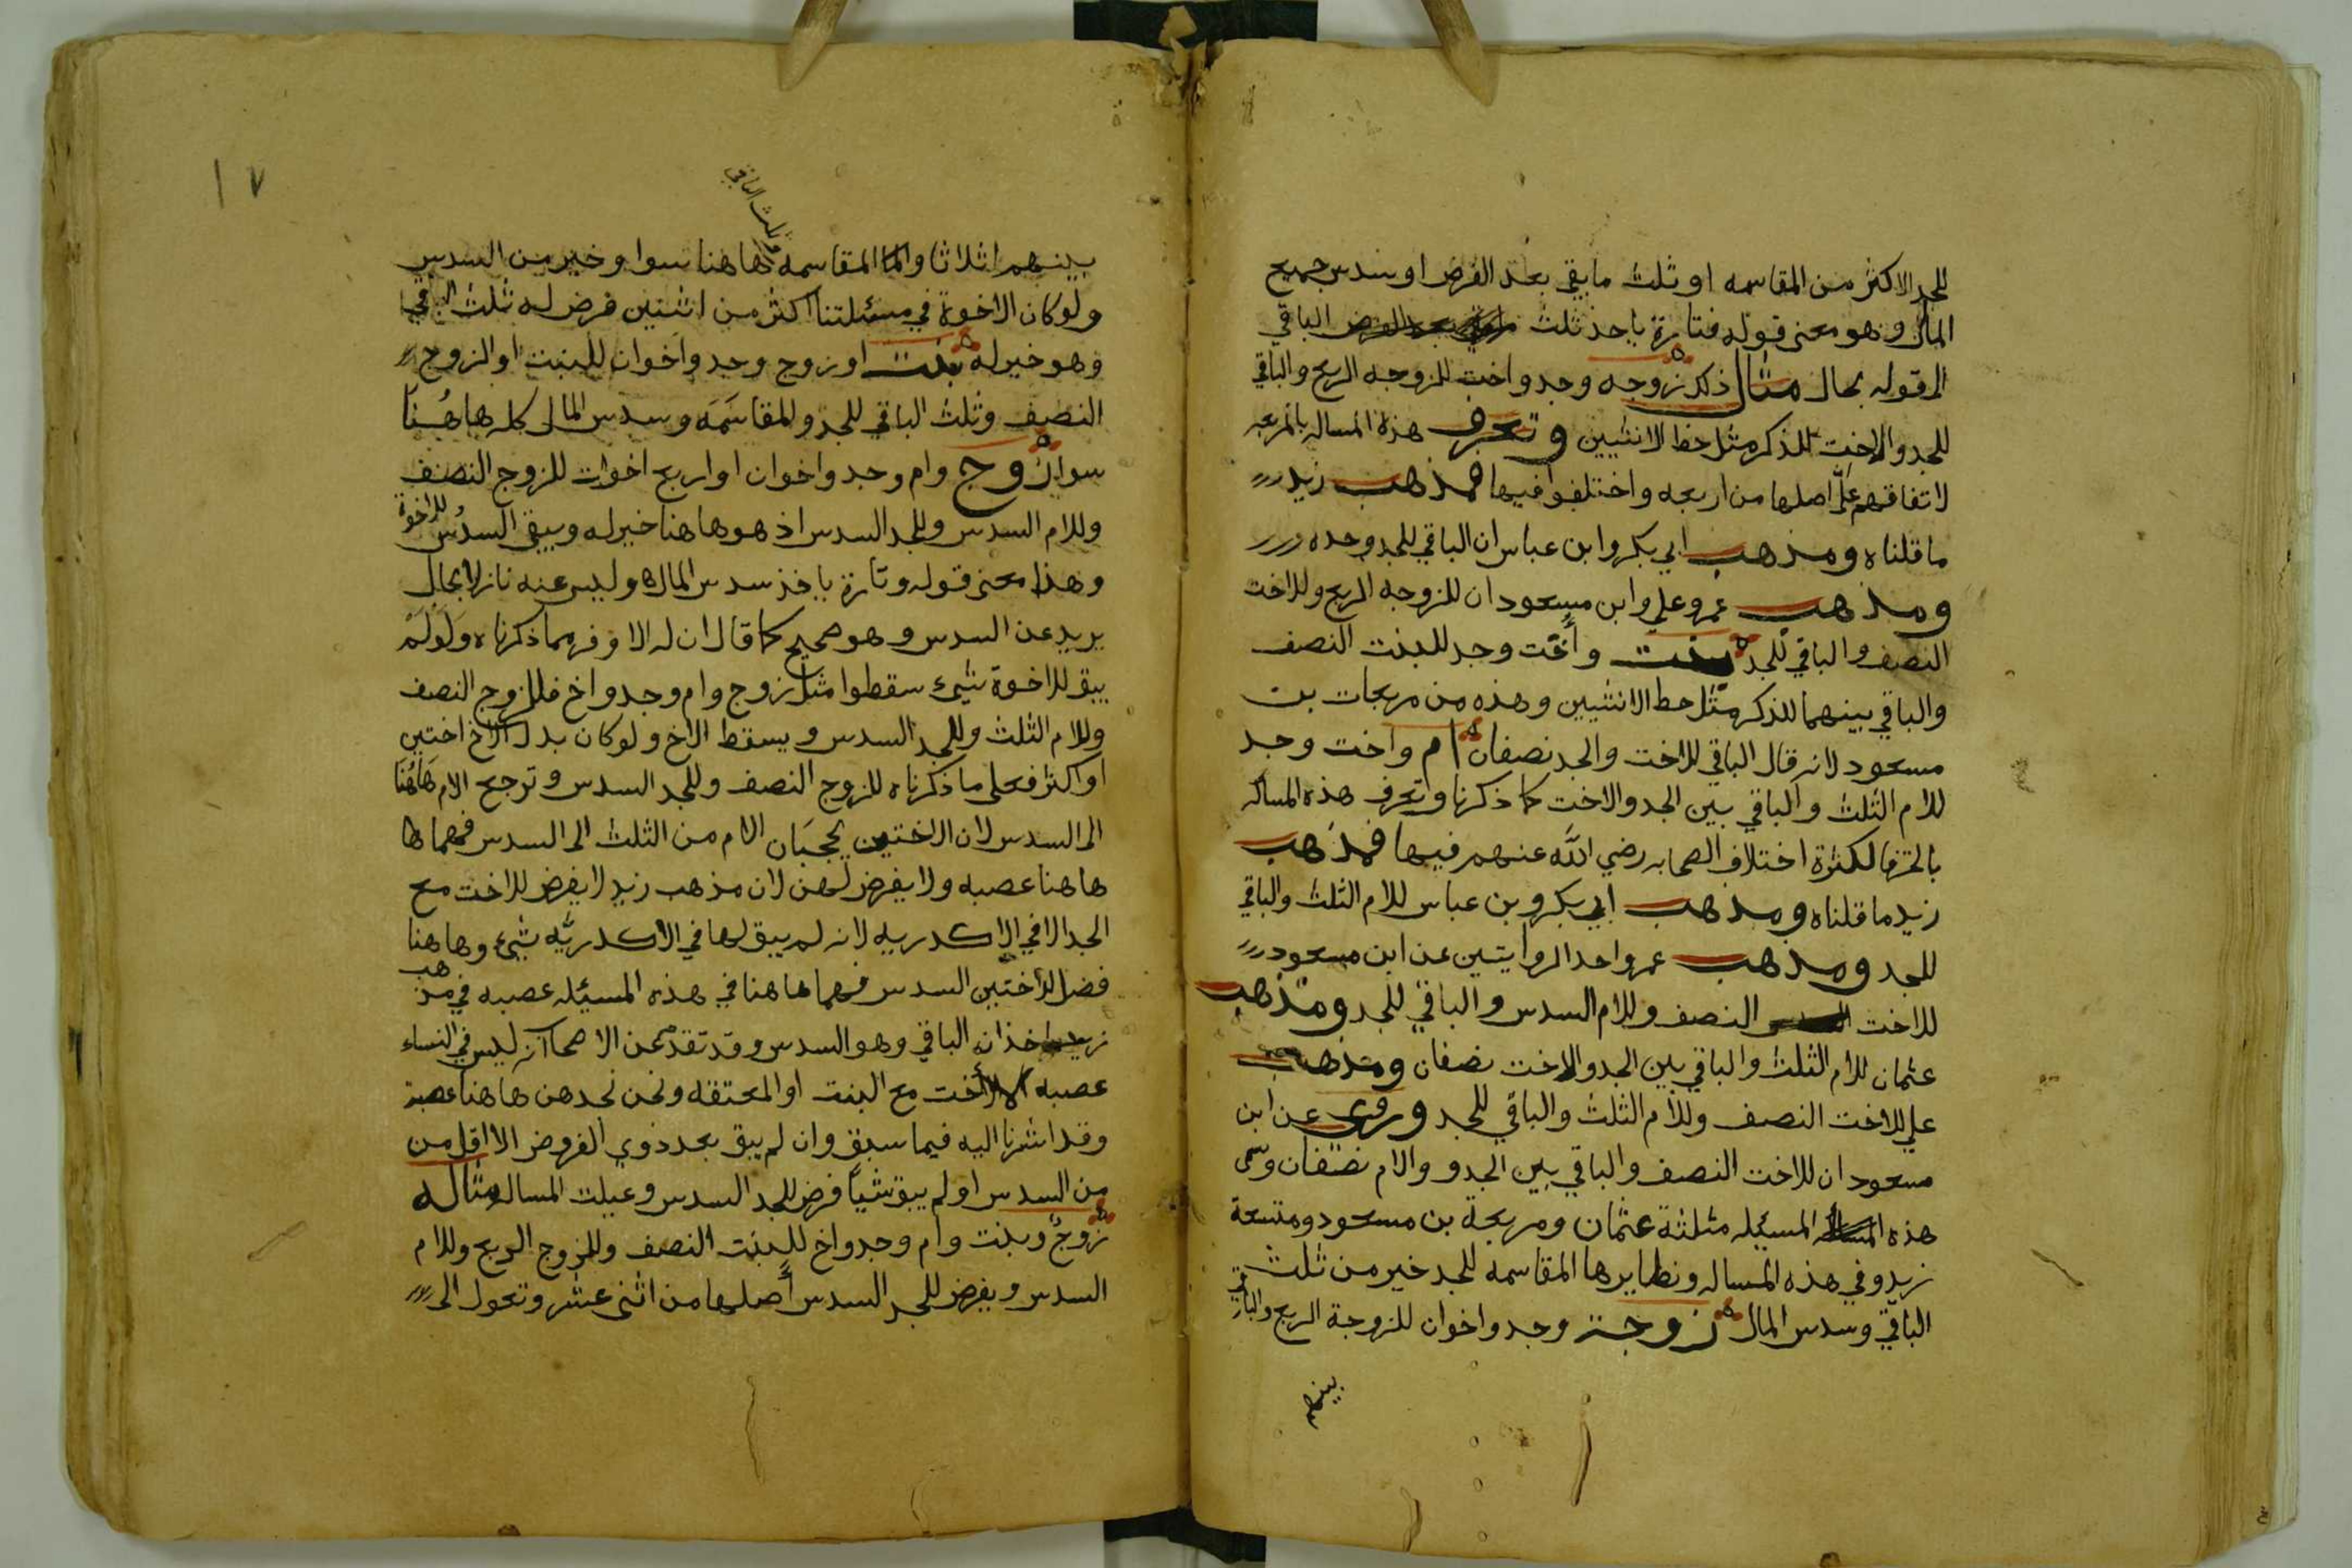 للجد الاكثر من المقاسمه او ثلث ما يبقي بعد الفرض او سدس جميع
المال وهو معنى قوله فتارة ياخذ ثلث الباقي
الى قوله بحال مثال ذلك زوجه وجد واخت للزوجه الربع والباقي
للجد والاخت للذكر مثل حظ الانثيين وتعرف هذه المساله بالمربعه
لاتفاقهم على اصلها من اربعه واختلفوا فيها فمذهب زيد
ما قلناه ومذهب ابي بكر وابن عباس ان الباقي للجد وحده
ومذهب عمر وعلي وابن مسعود ان للزوجه الربع وللاخت
النصف والباقي للجد بنت وأخت وجد للبنت النصف
والباقي بينهما للذكر مثل حظ الانثيين وهذه من مربعات بن
مسعود لانه قال الباقي للاخت والجد نصفان ام واخت وجد
للام الثلث والباقي بين الجد والاخت كما ذكرنا وتعرف هذه المساله
بالخرقا لكثرة اختلاف الصحابه رضي الله عنهم فيها فمذهب
زيد ما قلناه ومذهب ابي بكر وبن عباس للام الثلث والباقي
للجد ومذهب عمر واحد الروايتين عن ابن مسعود
للاخت النصف وللام السدس والباقي للجد ومذهب
عثمان للام الثلث والباقي بين الجد والاخت نصفان ومذهب
علي للاخت النصف وللام الثلث والباقي للجد وروى عن ابن
مسعود ان للاخت النصف والباقي بين الجد و والام نصفان وسمى
هذه المسيله مثلثة عثمان ومربعة بن مسعود ومتسعة
زيد وفي هذه المساله ونظايرها المقاسمه للجد خير من ثلث
الباقي وسدس المال زوجة وجد واخوان للزوجة الربع والباقي
بينهم
١٧
وثلث الباقي
بينهم اثلاثا والمقاسمه هاهنا سوا وخير من السدس
ولو كان الاخوة في مسئلتنا اكثر من اثنين فرض له ثلث الباقي
وهو خير له بنت او زوج وجد واخوان للبنت او الزوج
النصف وثلث الباقي للجد والمقاسَمَه وسدس المال كله هاهُنَا
سوا زوج وام وجد واخوان او اربع اخوات للزوج النصف
وللام السدس وللجد السدس اذ هو هاهنا خير له ويبقى السدُس للاخوة
وهذا معنى قوله وتارة ياخذ سدس المال وليس عنه نازلا بحال
يريد عن السدس وهو صحيح كما قال ان له الاوفر مما ذكرناه وَلَو لَمْ
يبق للاخوة شيء سقطوا مثل زوج وام وجد واخ فللزوج النصف
وللام الثلث وللجد السدس ويسقط الاخ ولو كان بدل الاخ اختين
او اكثر فعلى ما ذكرناه للزوج النصف وللجد السدس وترجع الام هَاهُنَا
الى السدس لان الاختين يحجبَان الام من الثلث الى السدس فهما
هاهنا عصبه ولا يفرض لهن لان مذهب زيد لا يفرض للاخت مع
الجد الا في الاكدريه لانه لم يبق لها في الاكدريَّه شيء وهاهنا
فضل للاختين السدس فهما هاهنا في هذه المسيئله عصبه في مذهب
زيد ياخذانه الباقي وهو السدس وقد تقدم عن الاصحاب انه ليس في النساء
عصبه الا الأخت مع البنت او المعتقه ونحن نجدهن هاهنا عصبة
وقد اشرنا اليه فيما سبق وان لم يبق بعد ذوي الفروض الا اقل من
من السدس او لم يبق شيأ فرض للجد السدس وعيلت المساله مثاله
زوجٌ وبنت وام وجد واخ للبنت النصف وللزوج الربع وللام
السدس ويفرض للجد السدس أصلها من اثنى عشر وتعول الى